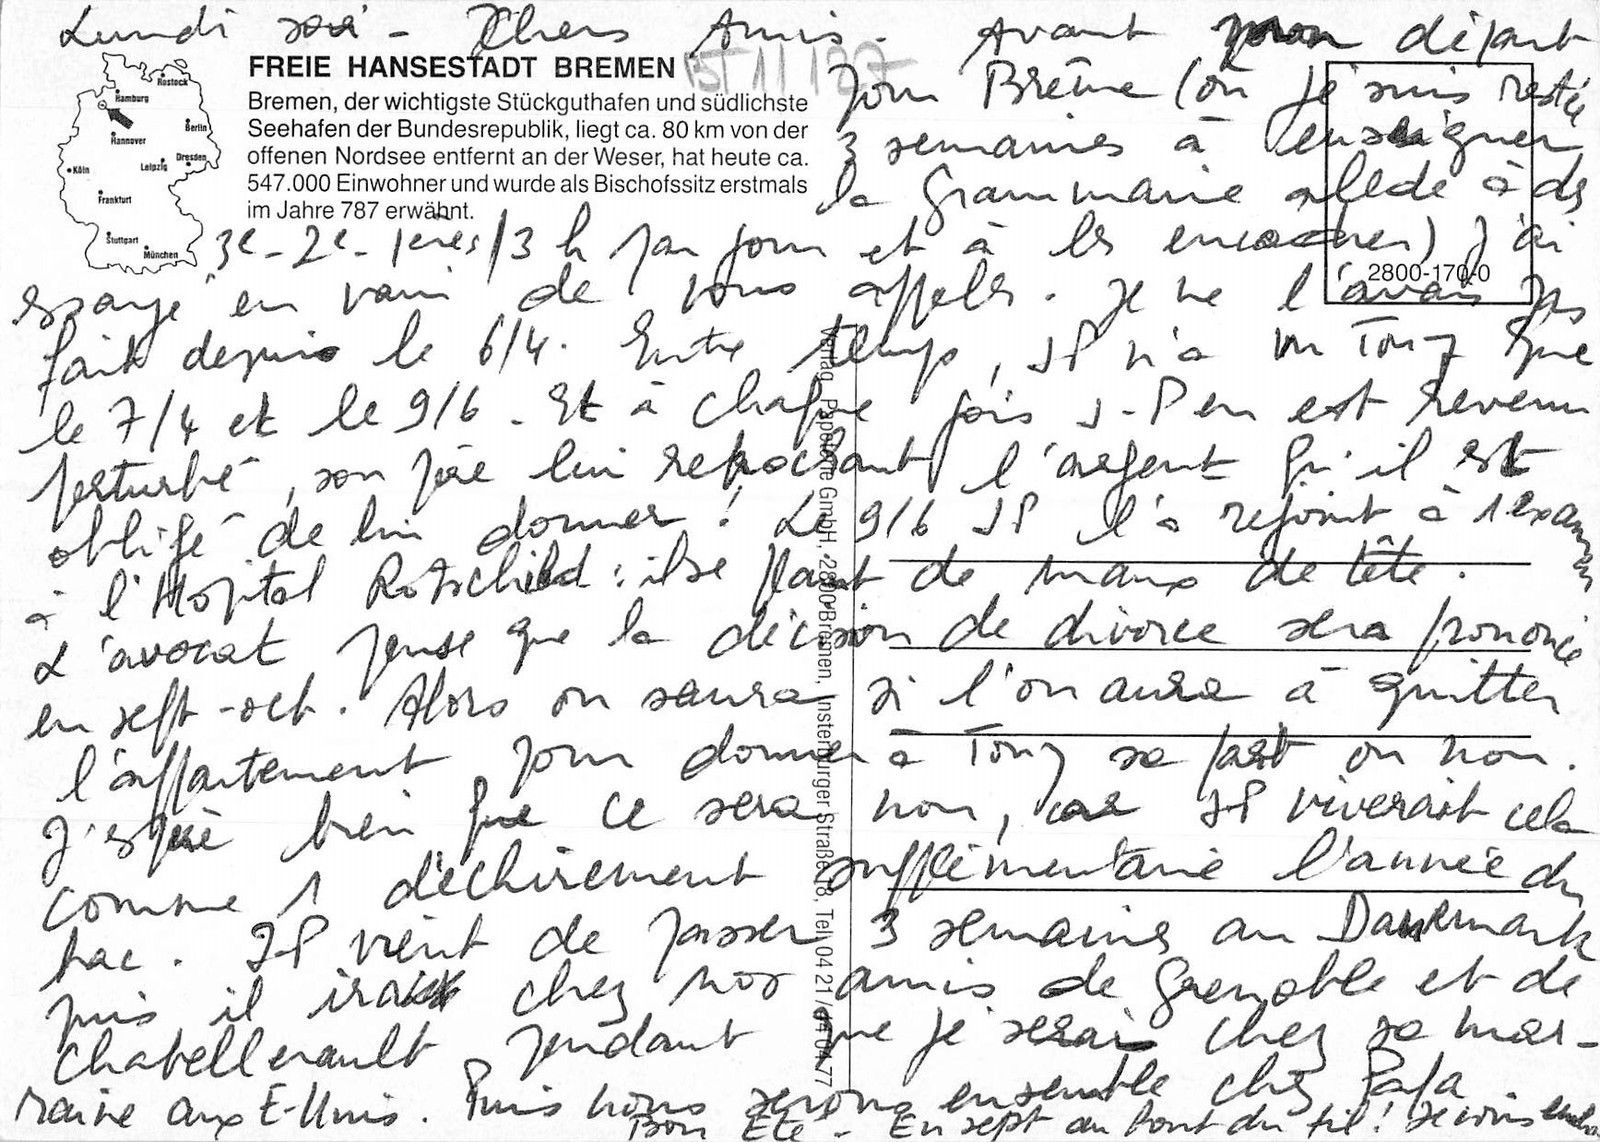 Lundi soir - Chers Amis. Avant mon départ
FREIE HANSESTADT BREMEN
Bremen, der wichtigste Stückguthafen und südlichste
Seehafen der Bundesrepublik, liegt ca. 80 km von der
offenen Nordsee entfernt an der Weser, hat heute ca.
547.000 Einwohner und wurde als Bischofssitz erstmals
im Jahre 787 erwähnt.
Rostock
Hamburg
Berlin
Hannover
Dresden
Leipzig
Köln
Frankfurt
Stuttgart
München
2800-170-0
pour Brême (où je suis restée
3 semaines à enseigner
la grammaire allede à des
3e - 2e - 1ères / 3 h par jour et à les encadrer) j'ai
essayé en vain de vous appeler. Je ne l'avais pas
fait depuis le 6/4. Entre temps, JP n'a vu Tony que
le 7/4 et le 9/6. Et à chaque fois J-P en est revenu
perturbé, son père lui reprochant l'argent qu'il est
obligé de lui donner ! Le 9/6 JP l'a rejoint à 1 examen
à l'Hôpital Rotschild : il se plaint de maux de tête.
L'avocat pense que la décision de divorce sera prononcée
en sept-oct. Alors on saura si l'on aura à quitter
l'appartement pour donner à Tony sa part ou non.
J'espère bien que ce sera non, car JP viverait cela
comme 1 déchirement supplémentaire l'année du
bac. JP vient de passer 3 semaines au Danemark
puis il ira chez nos amis de Grenoble et de
Chatellerault pendant que je serai chez sa mar-
raine aux E-Unis. Puis nous serons ensemble chez Papa.
Bon Eté - En sept au bout du fil ! Je vous
Verlag Papeterie GmbH, 2800 Bremen, Insterburger Straße 18, Tel. 04 21 / 44 04 77